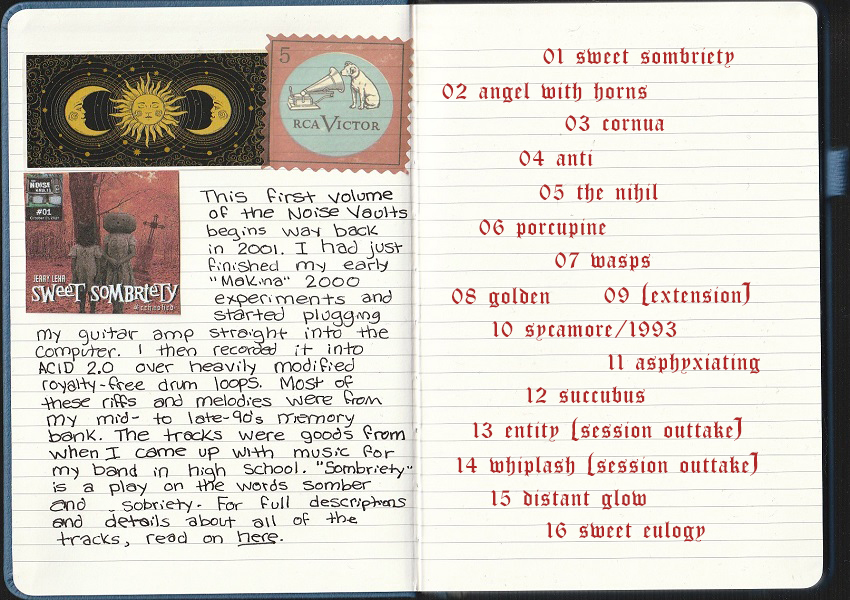 5
RCA VICTOR
THE
NOISE
VAULTS
#01
JERRY LEHR
SWEET SOMBRIETY
This first volume
of the Noise Vaults
begins way back
in 2001. I had just
finished my early
"Makina" 2000
experiments and
started plugging
my guitar amp straight into the
computer. I then recorded it into
ACID 2.0 over heavily modified
royalty-free drum loops. Most of
these riffs and melodies were from
my mid- to late-90s memory
bank. The tracks were goods from
when I came up with music for
my band in high school. "Sombriety"
is a play on the words somber
and sobriety. For full descriptions
and details about all of the
tracks, read on here.
01 sweet sombriety
02 angel with horns
03 cornua
04 anti
05 the nihil
06 porcupine
07 wasps
08 golden 09 [extension]
10 sycamore/1993
11 asphyxiating
12 succubus
13 entity [session outtake]
14 whiplash [session outtake]
15 distant glow
16 sweet eulogy